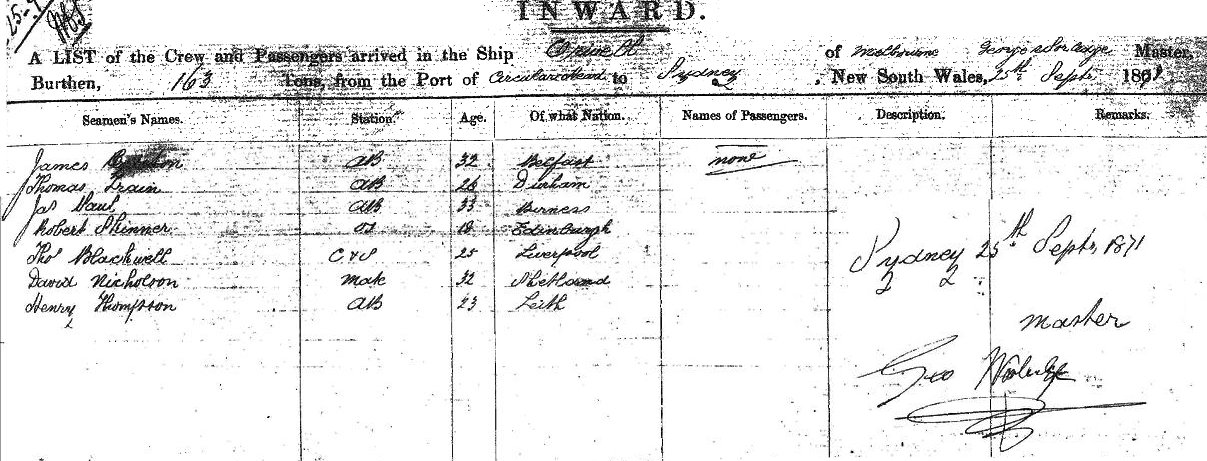 25-9
INWARD.
A LIST of the Crew and Passengers arrived in the Ship of Melbourne George Master,
Burthen, 163 Tons, from the Port of Circular Head to Sydney, New South Wales, 25th Septr 1871
Seamen's Names. Station. Age. Of what Nation. Names of Passengers. Description. Remarks.
James AB 32 Belfast none
Thomas Train AB 26 Durham
Jas Paul AB 33 
Robert Skinner OS 19 Edinburgh
Thos Blackwell C & S 25 Liverpool
David Nicholson Mate 32 Shetland
Henry Thompson AB 23 Leith
Sydney 25th Septr 1871
Master
Geo